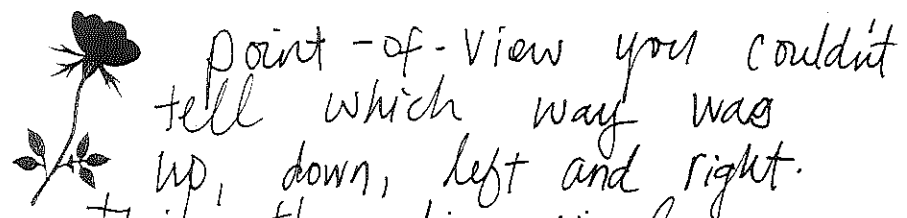 point-of-view you couldn't
tell which way was
up, down, left and right.